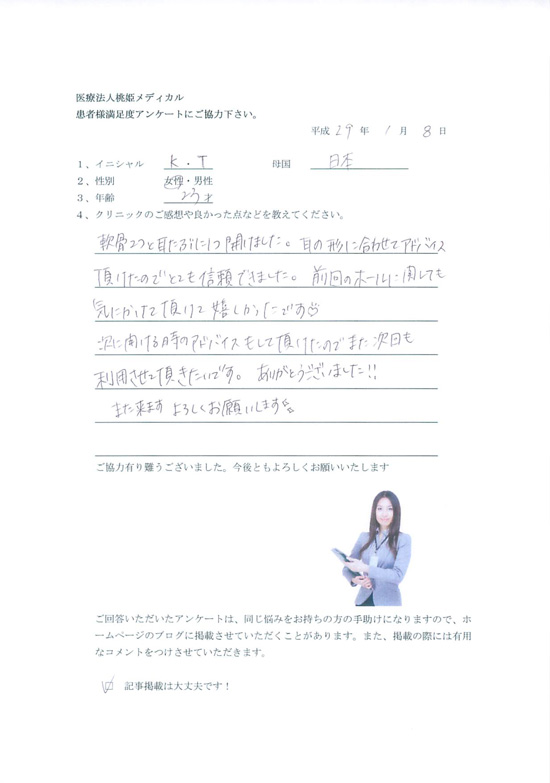 医療法人桃姫メディカル
患者様満足度アンケートにご協力下さい。
平成 29 年 1 月 8 日
1、イニシャル K・T 母国 日本
2、性別 女性・男性
3、年齢 23才
4、クリニックのご感想や良かった点などを教えてください。
軟骨2つと耳たぶに1つ開けました。耳の形に合わせてアドバイス
頂けたのでとても信頼できました。前回のホールに関しても
気にかけて頂けて嬉しかったです☺
次に開ける時のアドバイスもして頂けたのでまた次回も
利用させて頂きたいです。ありがとうございました!!
また来ます よろしくお願いします
ご協力有り難うございました。今後ともよろしくお願いいたします
ご回答いただいたアンケートは、同じ悩みをお持ちの方の手助けになりますので、ホ
ームページのブログに掲載させていただくことがあります。また、掲載の際には有用
なコメントをつけさせていただきます。
☑ 記事掲載は大丈夫です!